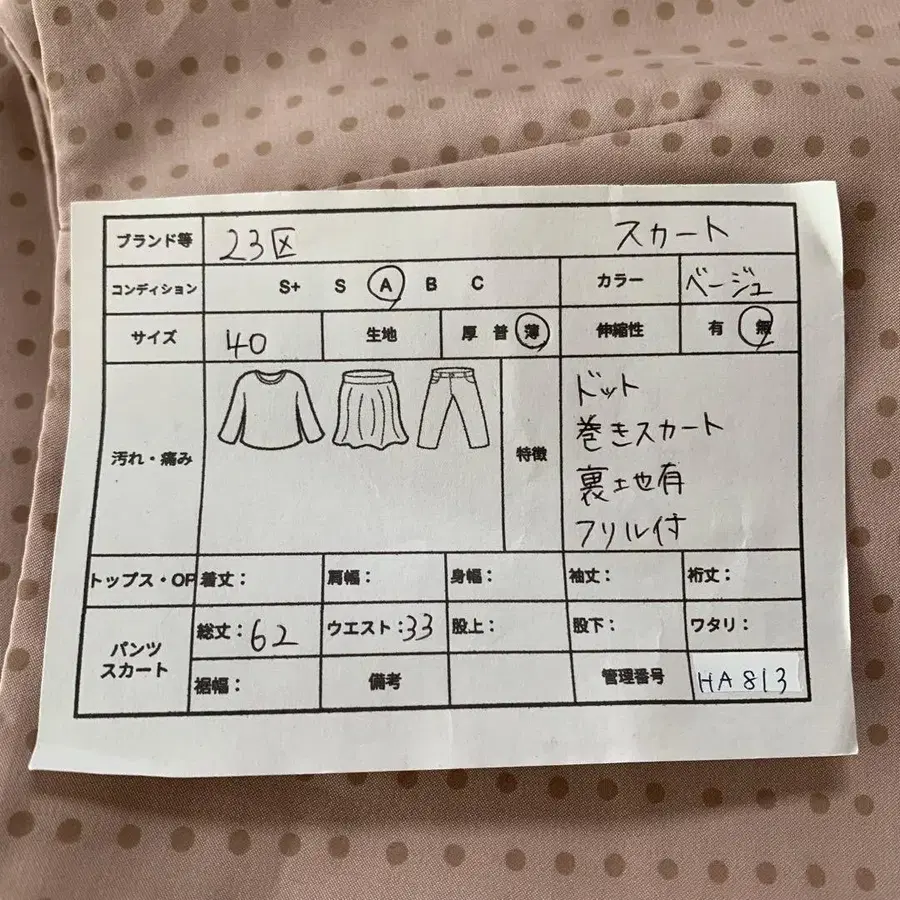 ブランド等 23区 スカート
コンディション S+ S A B C カラー ベージュ
サイズ 40 生地 厚 普 薄 伸縮性 有 無
汚れ・痛み 特徴
ドット
巻きスカート
裏地有
フリル付
トップス・OP 着丈: 肩幅: 身幅: 袖丈: 裄丈:
パンツ
スカート
総丈:62 ウエスト:33 股上: 股下: ワタリ:
裾幅: 備考 管理番号 HA813